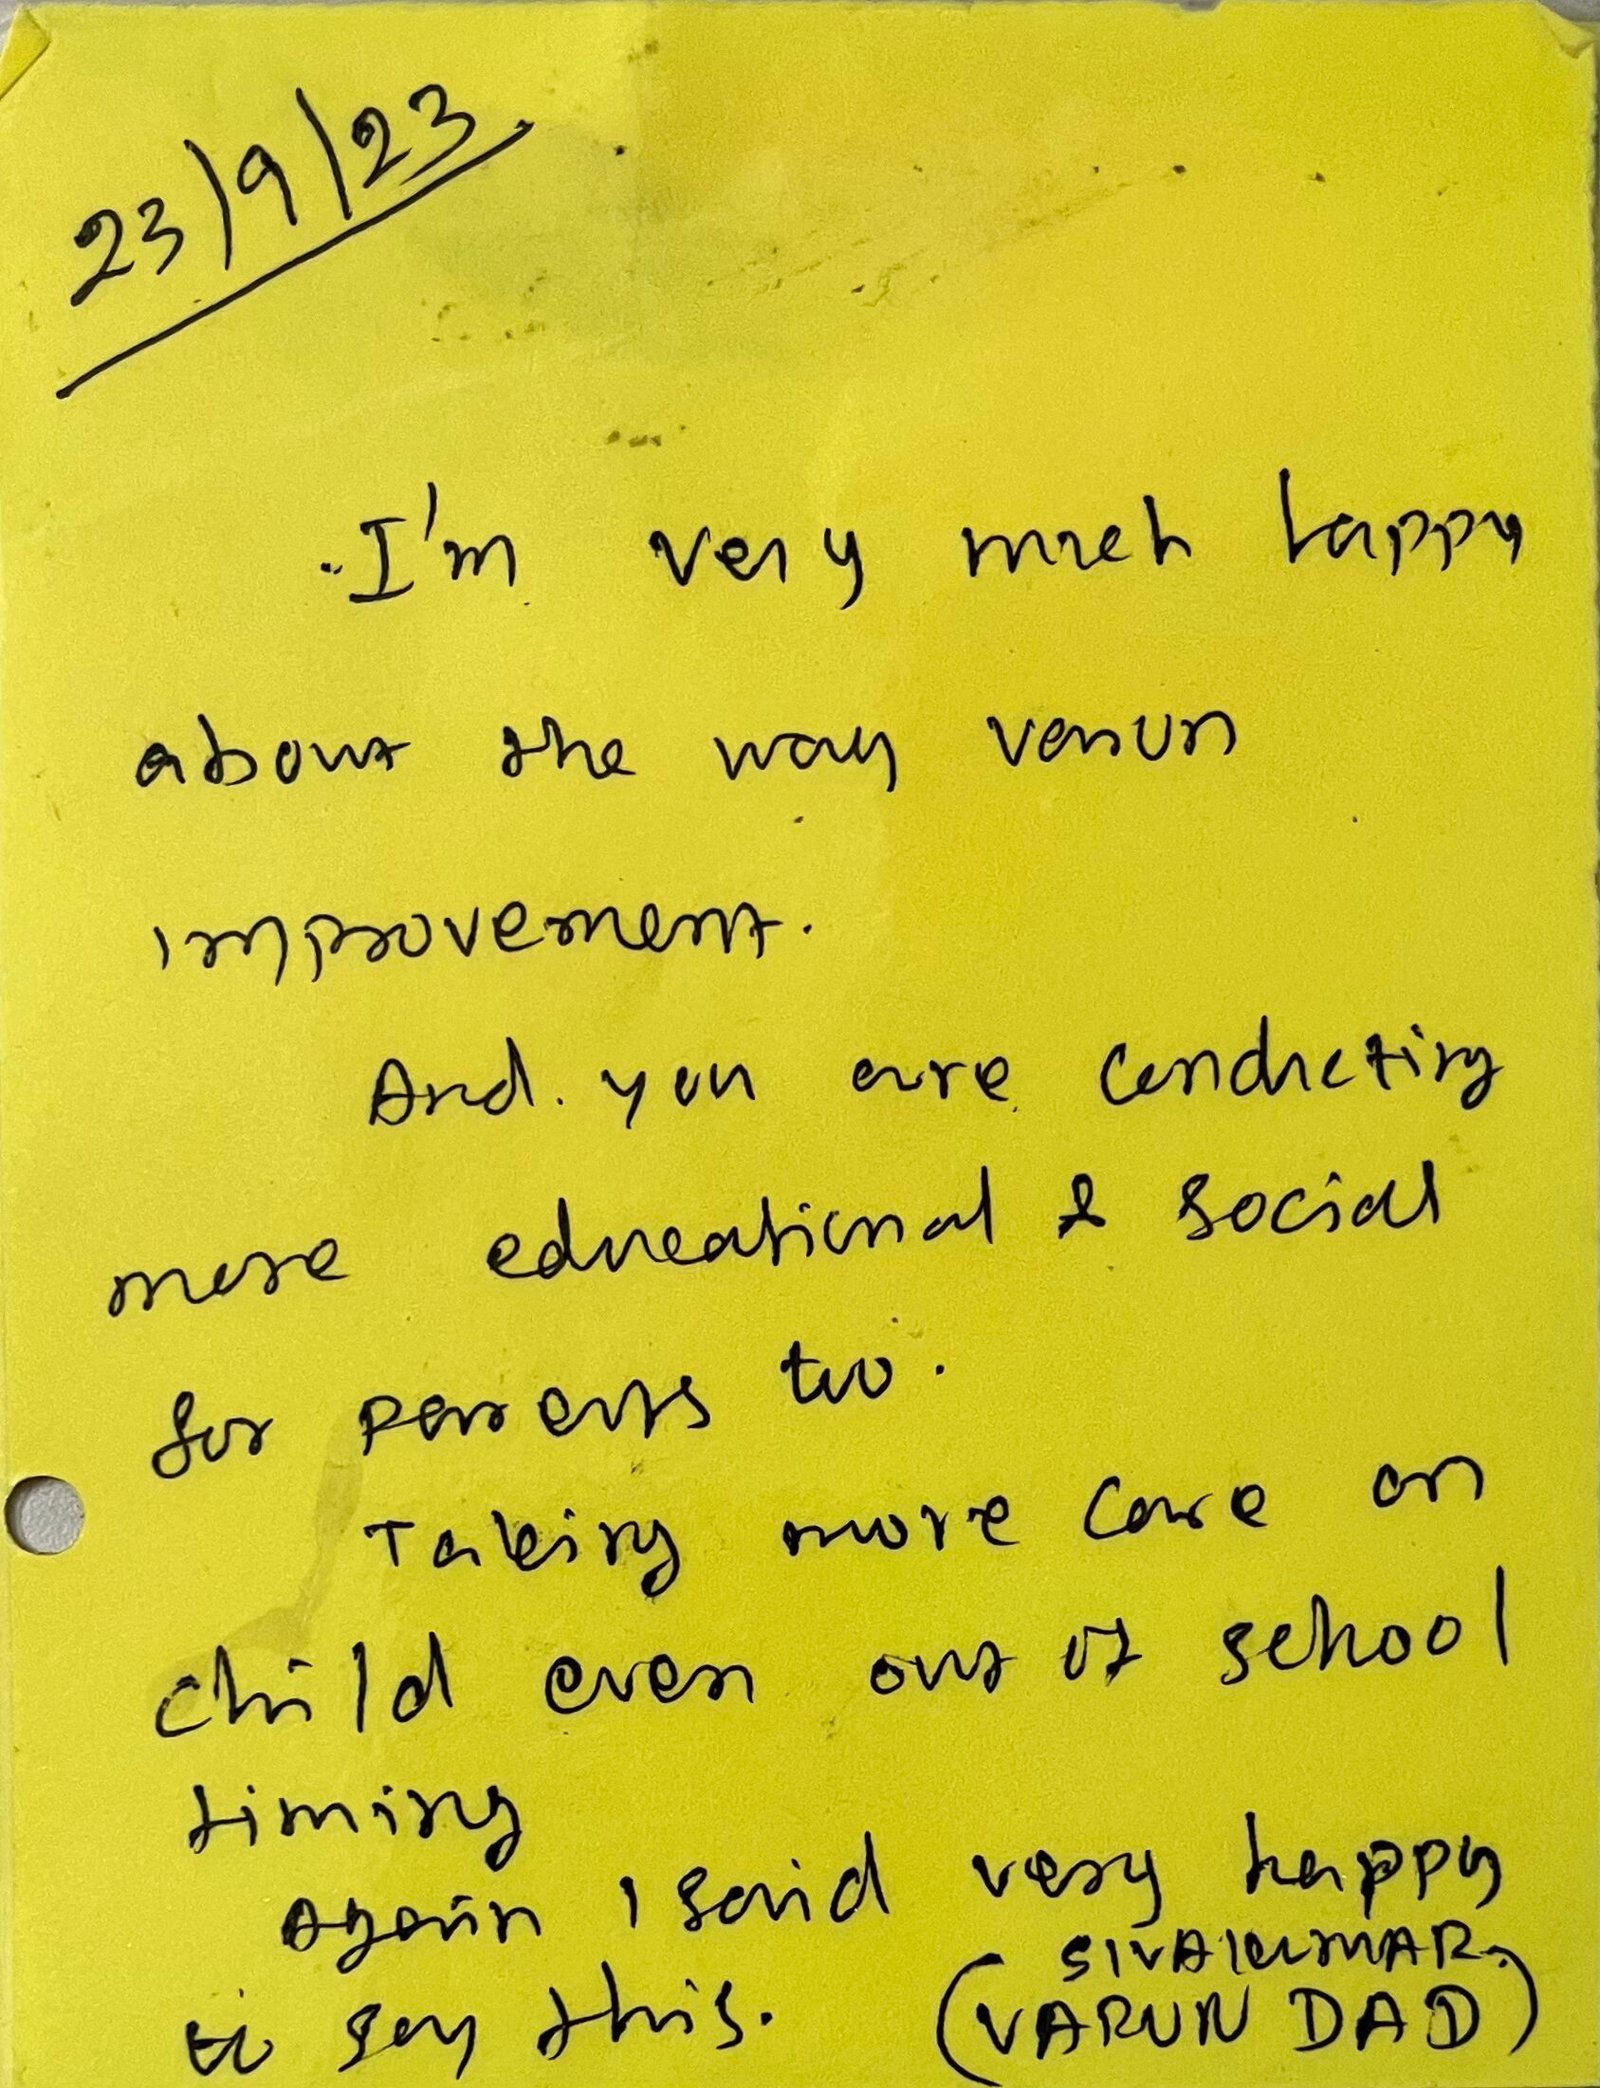 23/9/23
I'm very much happy
about the way varun
improvement.
And you are conducting
more educational & social
for parents too.
Taking more care on
child even out of school
timing
Again I said very happy
to say this.
SIVAKUMAR
(VARUN DAD)